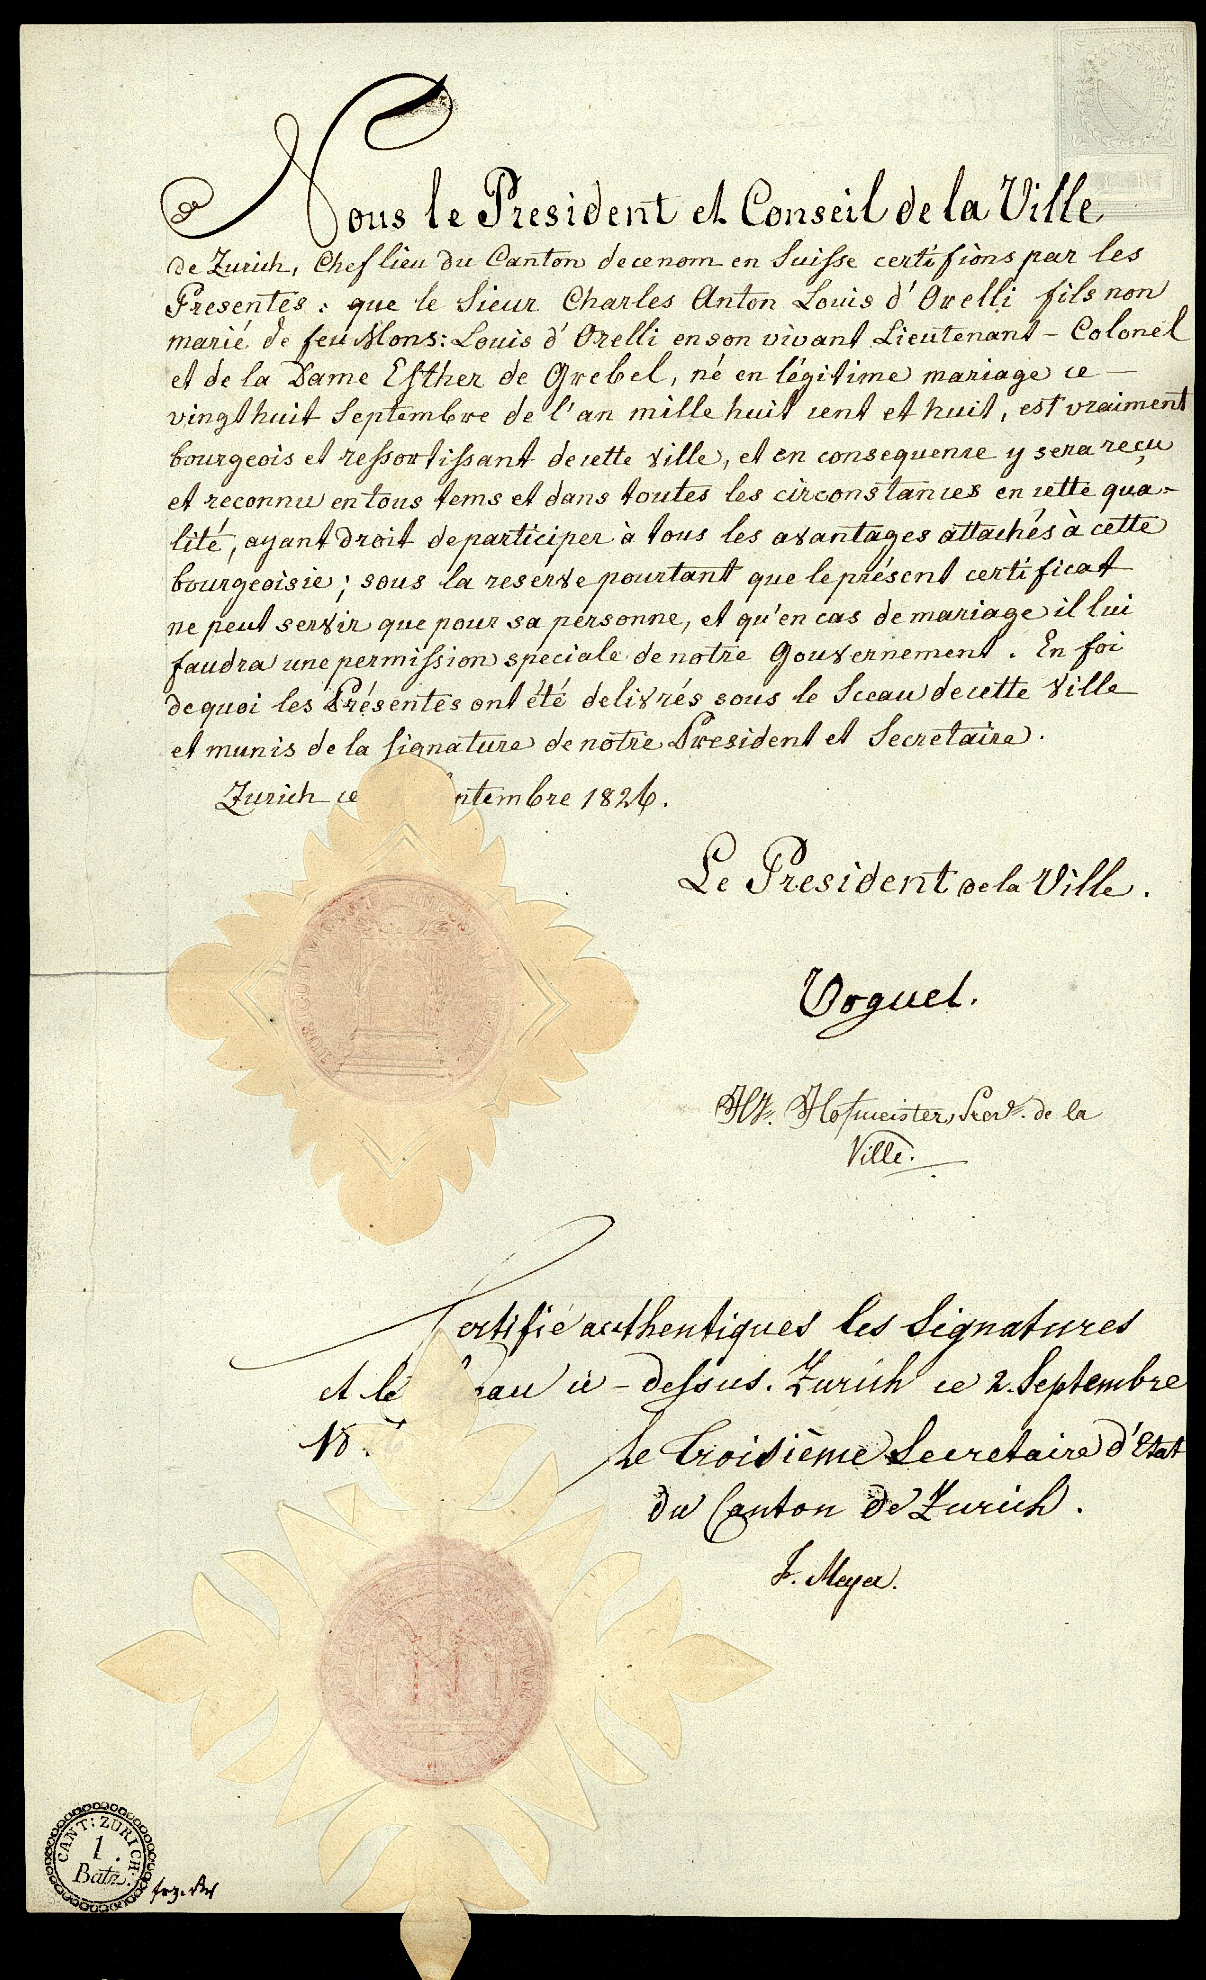 Nous le President et Conseil de la Ville
de Zurich, Chef lieu du Canton de ce nom en Suisse certifions par les
Presentes : que le Sieur Charles Anton Louis d'Orelli fils non
marié de feu Mons: Louis d'Orelli en son vivant Lieutenant - Colonel
et de la Dame Esther de Grebel, né en légitime mariage ce —
vingt huit Septembre de l'an mille huit cent et huit, est vraiment
bourgeois et ressortissant de cette ville, et en consequence y sera reçu
et reconnu en tous tems et dans toutes les circonstances en cette qua-
lité, ayant droit de participer à tous les avantages attachés à cette
bourgeoisie ; sous la reserve pourtant que le présent certificat
ne peut servir que pour sa personne, et qu'en cas de mariage il lui
faudra une permission speciale de notre Gouvernement. En foi
de quoi les Présentes ont été delivrés sous le Sceau de cette Ville
et munis de la signature de notre President et Secretaire.
Zurich ce ntembre 1826.
Le President de la Ville.
Voguel.
Hofmeister, Secr. de la
Ville.
Certifié authentiques les Signatures
et le eau ci-dessus. Zurich ce 2. Septembre
18
Le troisième Secretaire d'Etat
du Canton de Zurich.
F. Meyer.
CANT: ZURICH.
1.
Batz.